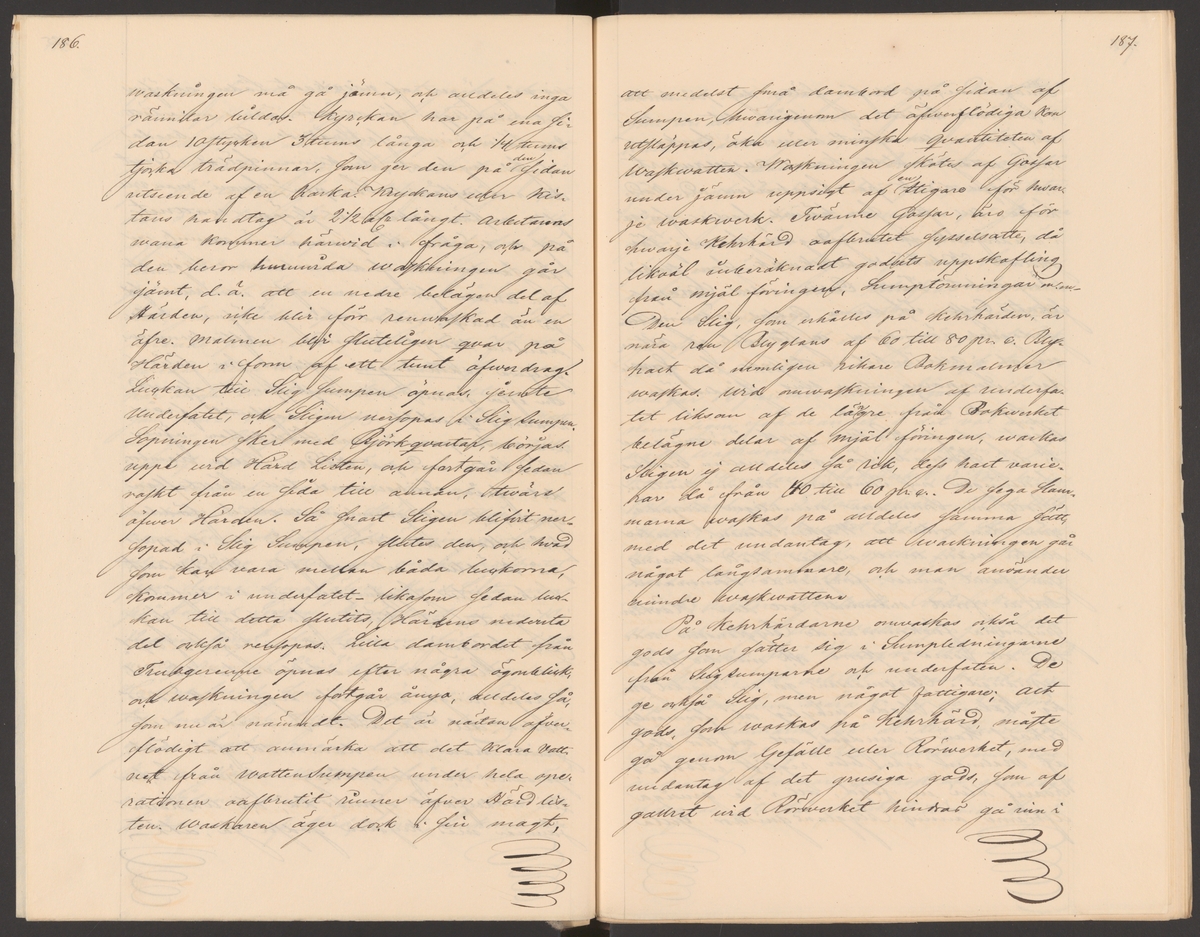 186.
waskningen må gå jämn, och alldeles inga
rännilar bildas. Kyrckan har på ena si-
dan 10 stycken 3 tums långa och 1/4 tums
tjocka trädpinnar, som ger den på den sidan
utseende af en Harka. Kryckans eller Kis-
tans handtag är 2 1/2 aln långt. Arbetarens
wana kommer härwid i fråga, och på
den beror huruvida waskningen går
jämt, d.ä. att en nedre belägen del af
Härden, icke blir förr renwaskad än en
äfre. Malmen blir sluteligen qvar på
Härden i form af ett tunt äfwerdrag.
Luckan till Slig Sumpen öpnas, jemte
Underfatet, och Sligen nersopas i Slig sumpen.
Sopningen sker med Björkqvastar, börjas
uppe wid Härd Listen, och fortgår sedan
raskt från en sida till annan, twärs
äfwer Härden. Så snart Sligen blifvit ner-
sopad i Slig Sumpen, slutes den, och hwad
som kan vara mellan båda luckorna,
kommer i underfatet likasom sedan luc-
kan till detta slutits, Härdens nedersta
del också rensopas. Lilla dambordet från
Trubgerenne öpnas efter några ögonblick,
och waskningen fortgår ånyo, alldeles så,
som nu är nämndt. Det är nästan äfver-
flödigt att anmärka att det klara vatt-
net från wattensumpen under hela ope-
rationen oafbrutit rinner äfver Härd lis-
ten. Waskaren äger dock i sin magt,
187.
att medelst små dambord på sidan af
Sumpen, hwarigenom det äfwerflödiga kan
utsläppas, öka eller minska Qvantiteten af
Waskwatten. Waskningen skötes af Gossar
under jämn uppsigt af en Stigare för hwar-
je waskwerk. Twänne Gossar, äro för
hwarje Kehrhärd oafbrutet sysselsatte, då
likväl inberäknadt godsets uppskofling
från mjäl föringen, Sumptömningar m.m.
Den Slig, som erhålles på Kehrhärden, är
nära ren Blyglans af 60 till 80 pr. c. Bly-
halt då nemligen rikare Bokmalmer
waskas. Wid omwaskningen af underfa-
tet liksom af de lägre från Bokwerket
belägne delar af mjäl föringen, waskas
Sligen ej alldeles så rik, dess halt varie-
rar då från 40 till 60 pr. c. De sega Slam-
marna waskas på alldeles samma sätt,
med det undantag, att waskningen går
något långsammare, och man använder
mindre waskwatten.
På Kehrhärdarne omwaskas också det
gods som sätter sig i Sumpledningarne
från Sligsumparne och underfaten. De
ge också Slig, men något fattigare; allt
gods, som waskas på Kehrhärd, måste
gå genom Gefälle eller Rörwerket, med
undantag af det grusiga gods, som af
gallret wid Rörwerket hindras gå inn i